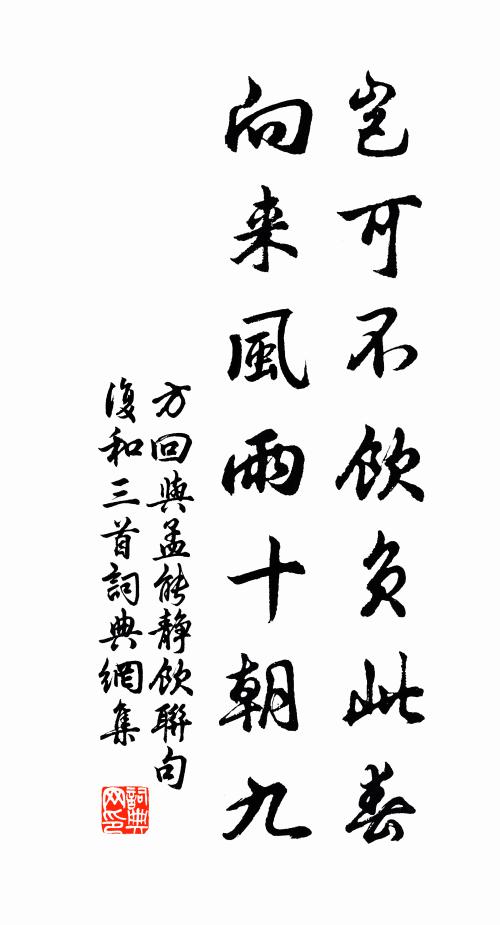 豈可不飲負此春
向来風雨十朝九
方回與孟能靜飲聯句
復和三首詞典網集
詞典
网印